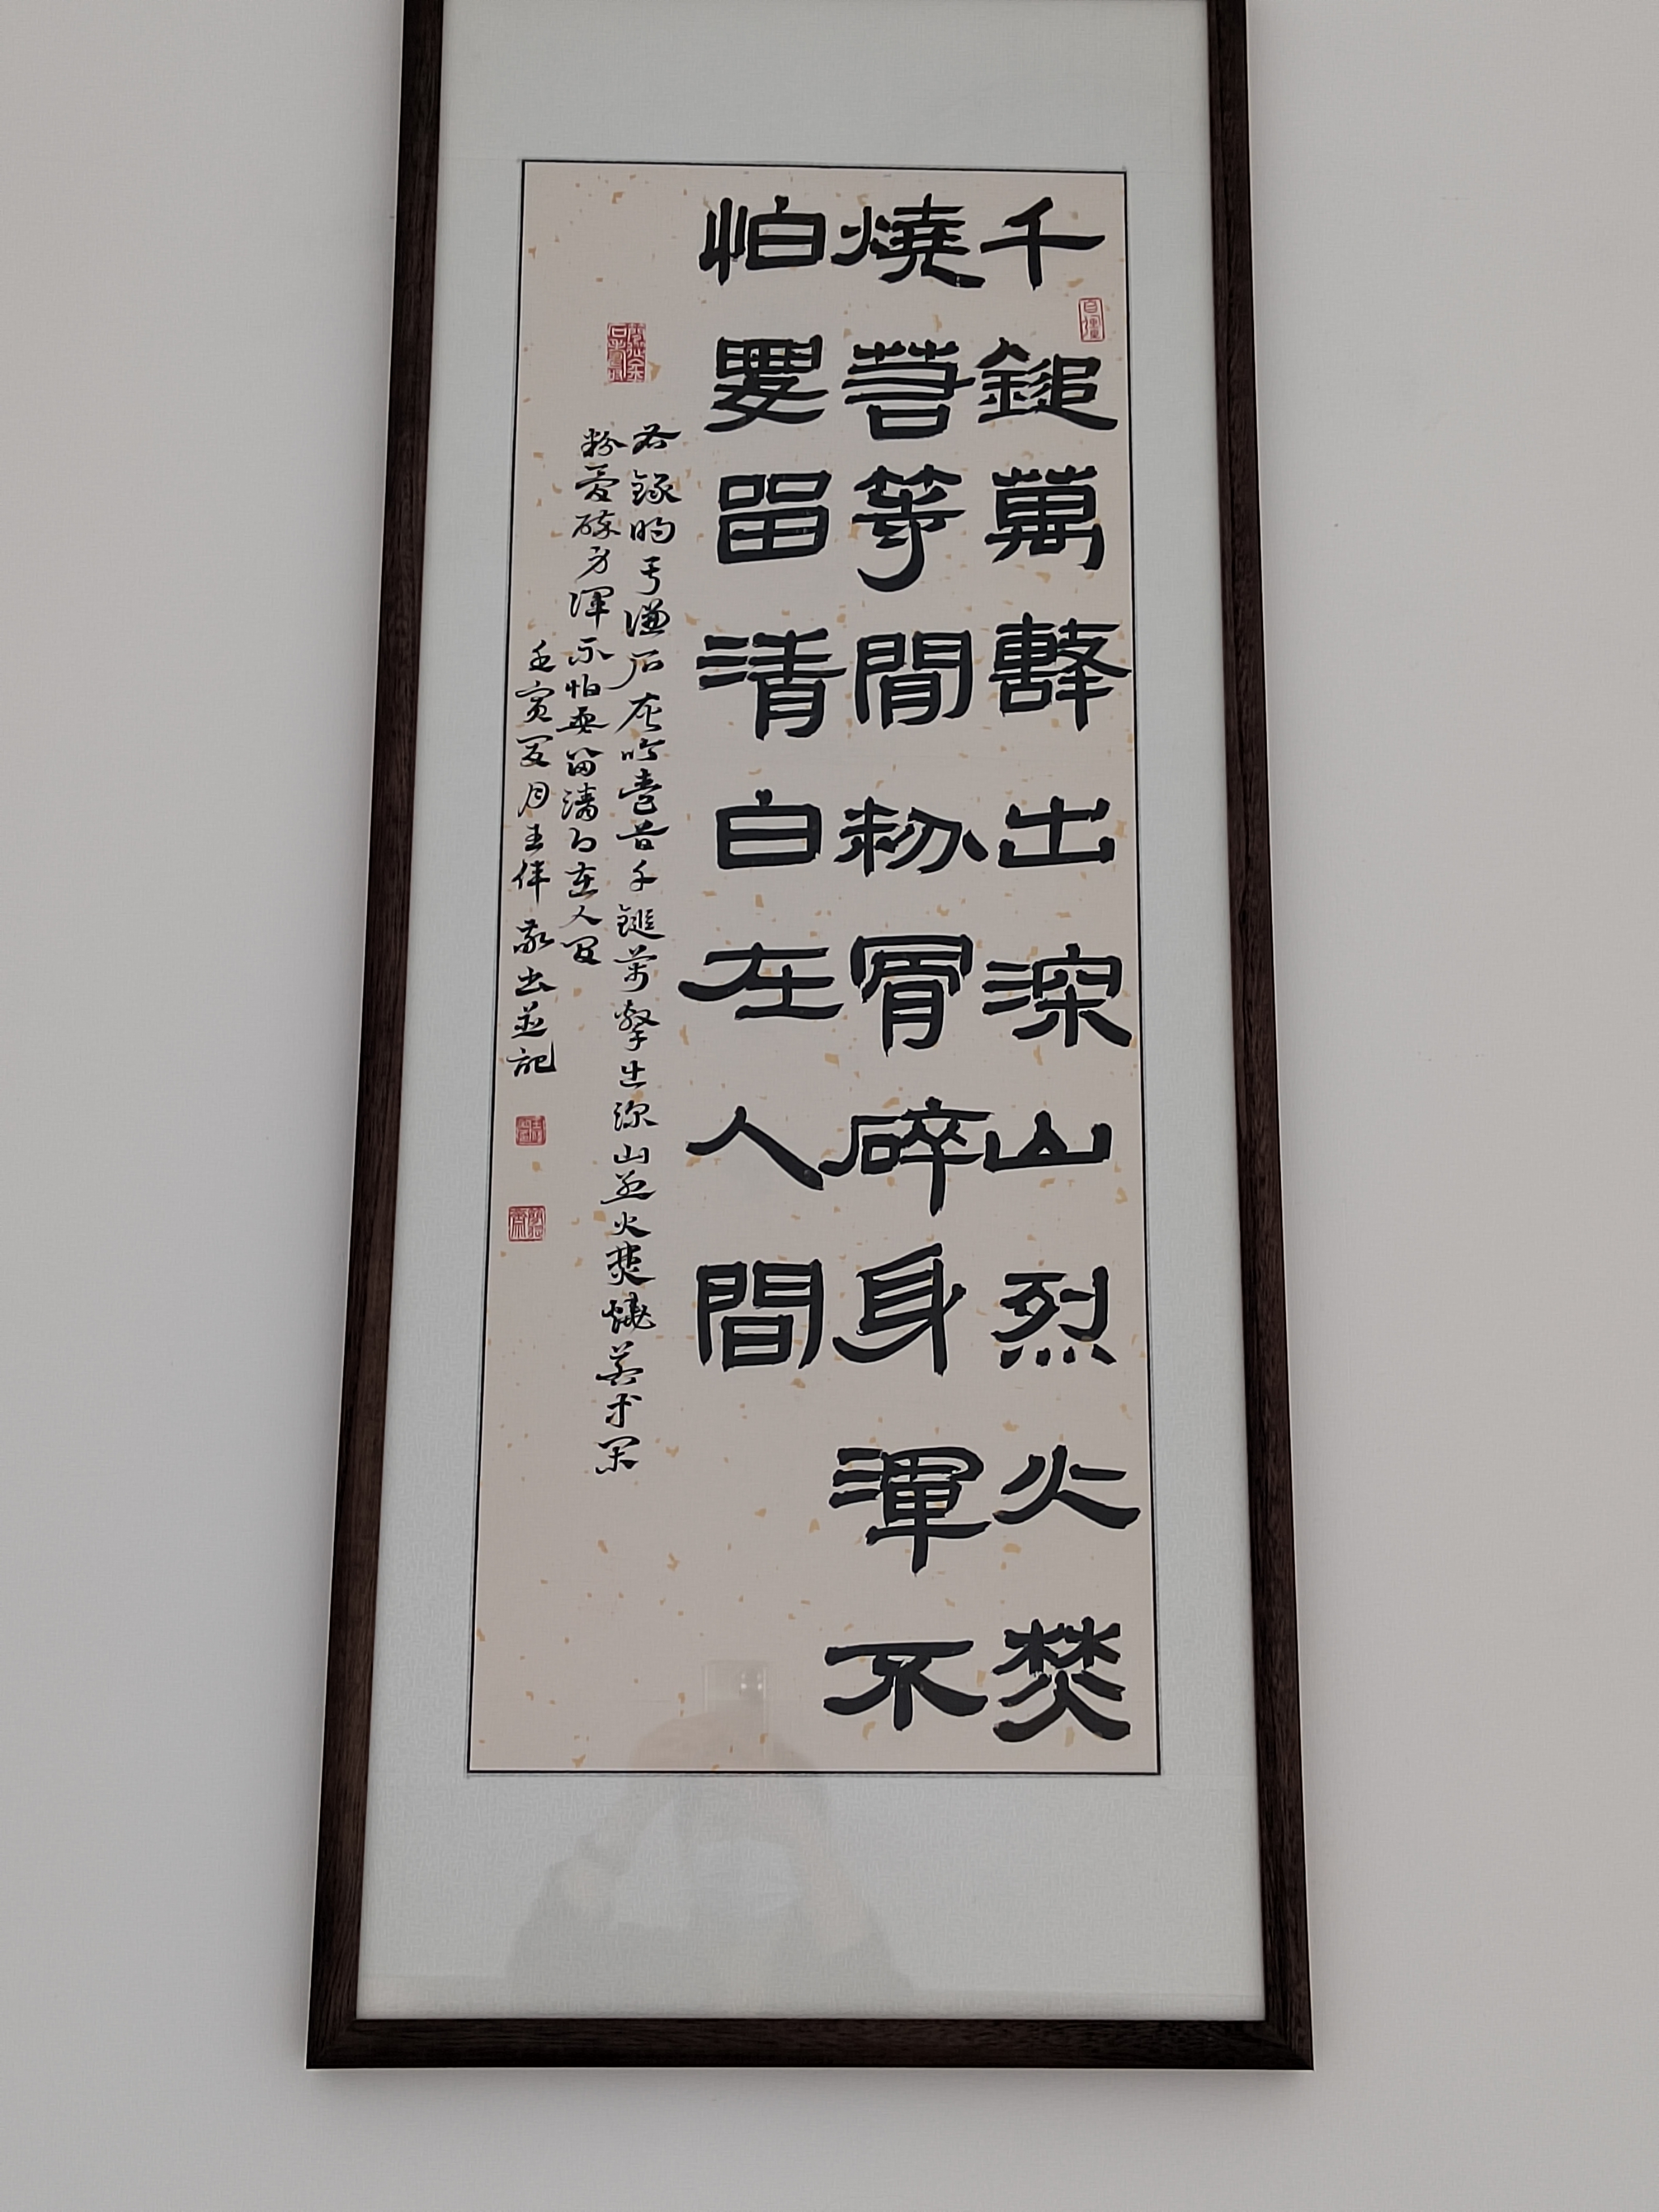 千鎚萬擊出深山烈火焚
燒若等閒粉骨碎身渾不
怕要留清白在人間
右錄明于謙石灰吟壹首千鎚萬擊出深山烈火焚燒若等閑
粉骨碎身渾不怕要留清白在人間
壬寅夏月敬書並記